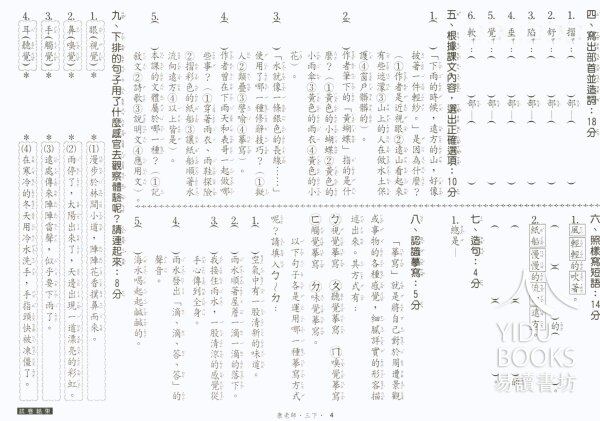 四、寫出部首並造詞:18分
1. 摺:( )部—( )
2. 舒:( )部—( )
3. 陷:( )部—( )
4. 歪:( )部—( )
5. 覺:( )部—( )
6. 軟:( )部—( )
五、根據課文內容,選出正確選項:10分
1. ( )「下雨的時候,遠方的山,好像
披著一件輕紗。」是因為什麼?
(①作者是近視眼②遠山看起來
有些迷濛③山上的人在做水土保
護④窗戶髒髒的)
2. ( )作者筆下的「黃蝴蝶」指的是什
麼?(①黃色的小蝴蝶②黃色的
小雨傘③黃色的雨衣④黃色的小
花)。
3. ( )「水就像一條銀色的長線……」
使用了哪一種修辭技巧?(①擬
人②類疊③譬喻④摹寫。
4. ( )作者曾在下雨天和表哥一起做哪
些事?(①穿著雨衣、雨鞋探險
②摺彩色的紙船③讓紙船順著水
流向遠方④以上皆是)。
5. ( )本課的文體屬於哪一種?(①記
敘文②詩歌③說明文④應用文)。
六、照樣寫短語:14分
1. 風輕輕的吹著。
( )的( )
2. 紙船慢慢的流向遠方
七、造句:4分
1. 總是—
八、認識摹寫:5分
「摹寫」就是將自己對於周遭景觀
或事物的各種感覺,細膩詳實的形容描
述出來。其方式有:
ㄅ視覺摹寫 ㄆ聽覺摹寫 ㄇ嗅覺摹寫
ㄈ觸覺摹寫 ㄉ味覺摹寫
以下句子各是運用哪一種摹寫方式
呢?請填入ㄅ~ㄉ:
1. ( )空氣中有一股清新的味道。
2. ( )雨水順著屋簷一滴一滴的落下。
3. ( )我接住雨水,一股清涼的感覺從
手心傳到全身。
4. ( )雨水發出「滴、滴、答、答」的
聲音。
5. ( )海水喝起起鹹鹹的。
九、下排的句子用了什麼感官去觀察體驗呢?請連起來:8分
1. 眼(視覺)*
2. 鼻(嗅覺)*
3. 手(觸覺)*
4. 耳(聽覺)*
*(1) 漫步於林間小道,陣陣花香撲鼻而來。
*(2) 雨停了,太陽出來了,天邊出現一道漂亮的彩虹。
*(3) 遠處傳來陣陣雷聲,似乎要下雨了。
*(4) 在寒冷的冬天用冷水洗手,手指頭快被凍僵了。
試卷結束
康老師·三下· 4
YIDU
BOOKS
易讀書坊